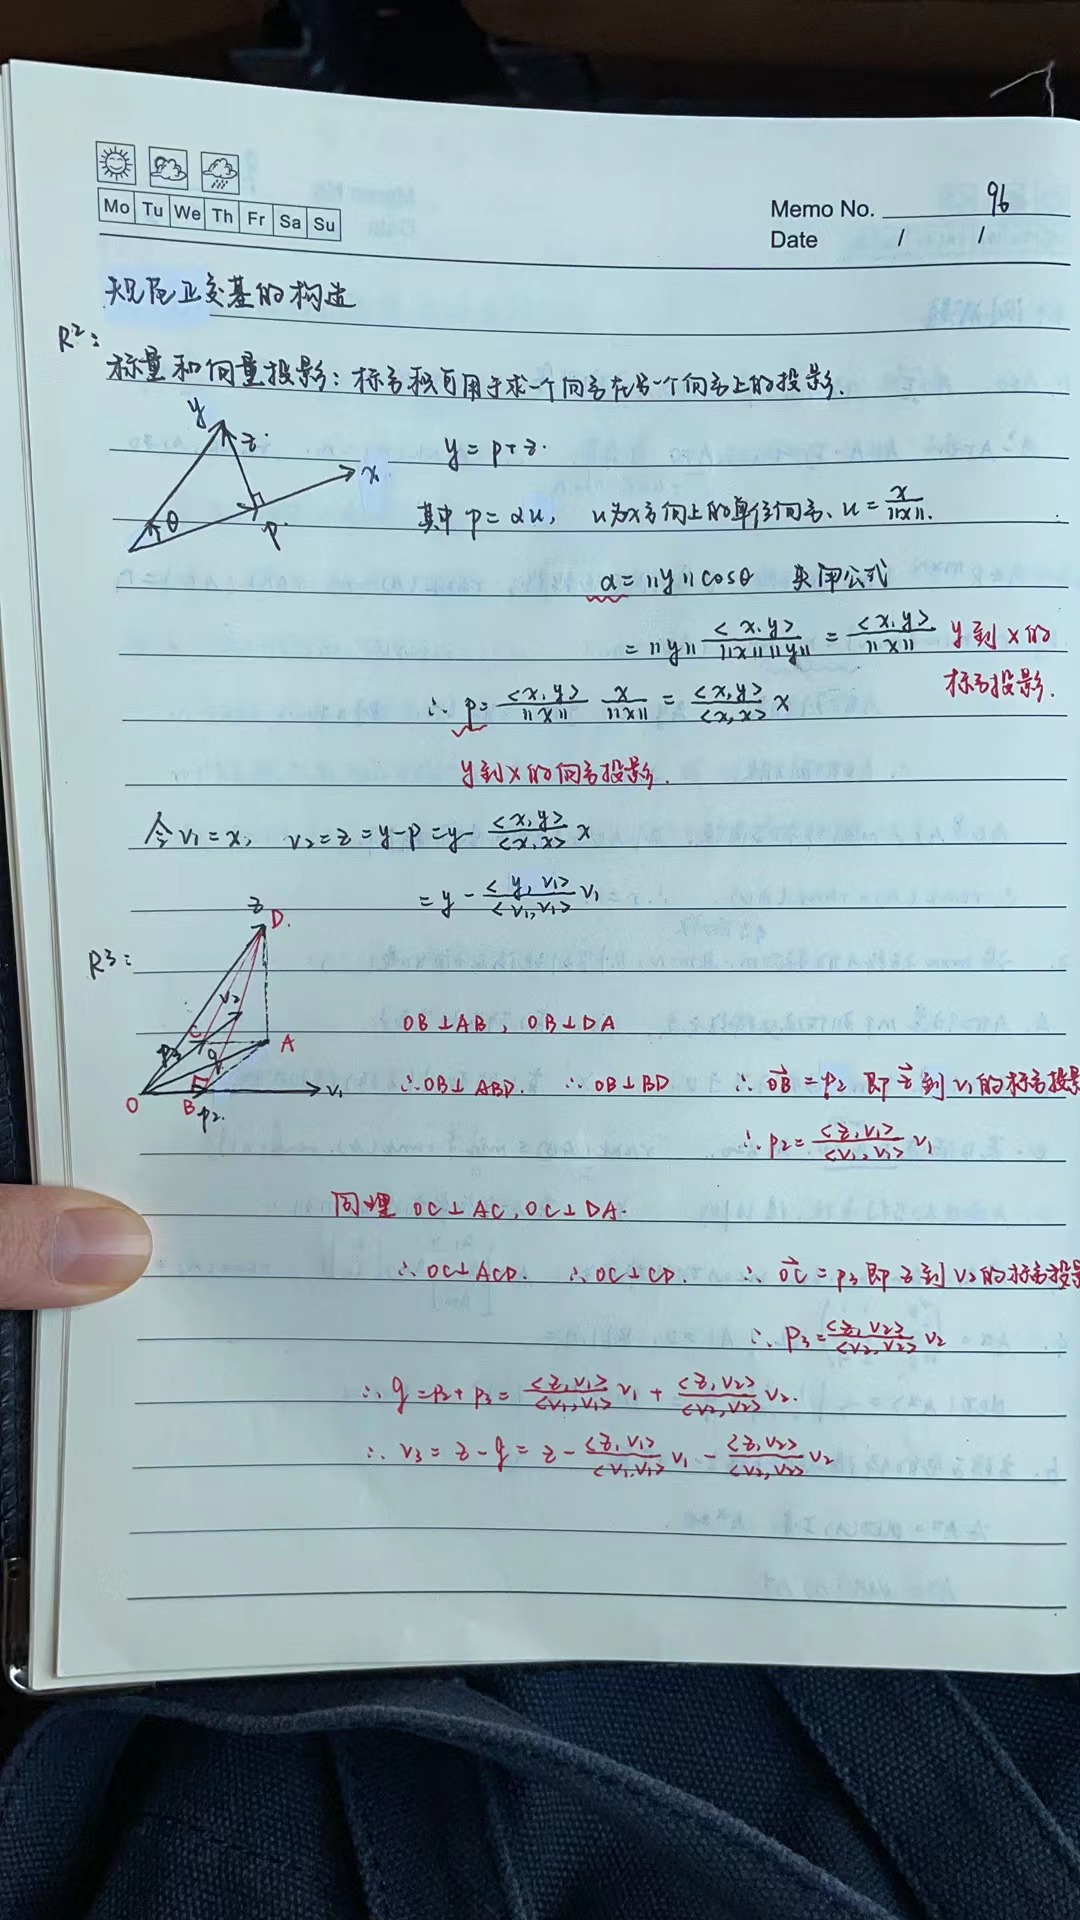 Mo Tu We Th Fr Sa Su
Memo No. 96
Date / /
规范正交基的构造
R²:
标量和向量投影: 标量积可用于求一个向量在另一个向量上的投影.
y z x θ p
y = p + z.
其中 p = αu, u为x方向上的单位向量、u = x/||x||.
α = ||y|| cosθ 夹角公式
= ||y|| <x,y>/(||x|| ||y||) = <x,y>/||x|| y到x的
标量投影.
∴ p = <x,y>/||x|| x/||x|| = <x,y>/<x,x> x
y到x的向量投影.
令 v₁ = x, v₂ = z = y-p = y - <x,y>/<x,x> x
= y - <y,v₁>/<v₁,v₁> v₁
R³:
z D v₂ C p₃ q A O B p₂ v₁
OB⊥AB, OB⊥DA
∴OB⊥ABD. ∴OB⊥BD ∴ OB = p₂ 即 z到v₁的标量投影
∴ p₂ = <z,v₁>/<v₁,v₁> v₁
同理 OC⊥AC, OC⊥DA.
∴OC⊥ACD. ∴OC⊥CD. ∴ OC = p₃ 即 z到v₂的标量投影
∴ p₃ = <z,v₂>/<v₂,v₂> v₂
∴ q = p₂ + p₃ = <z,v₁>/<v₁,v₁> v₁ + <z,v₂>/<v₂,v₂> v₂.
∴ v₃ = z - q = z - <z,v₁>/<v₁,v₁> v₁ - <z,v₂>/<v₂,v₂> v₂